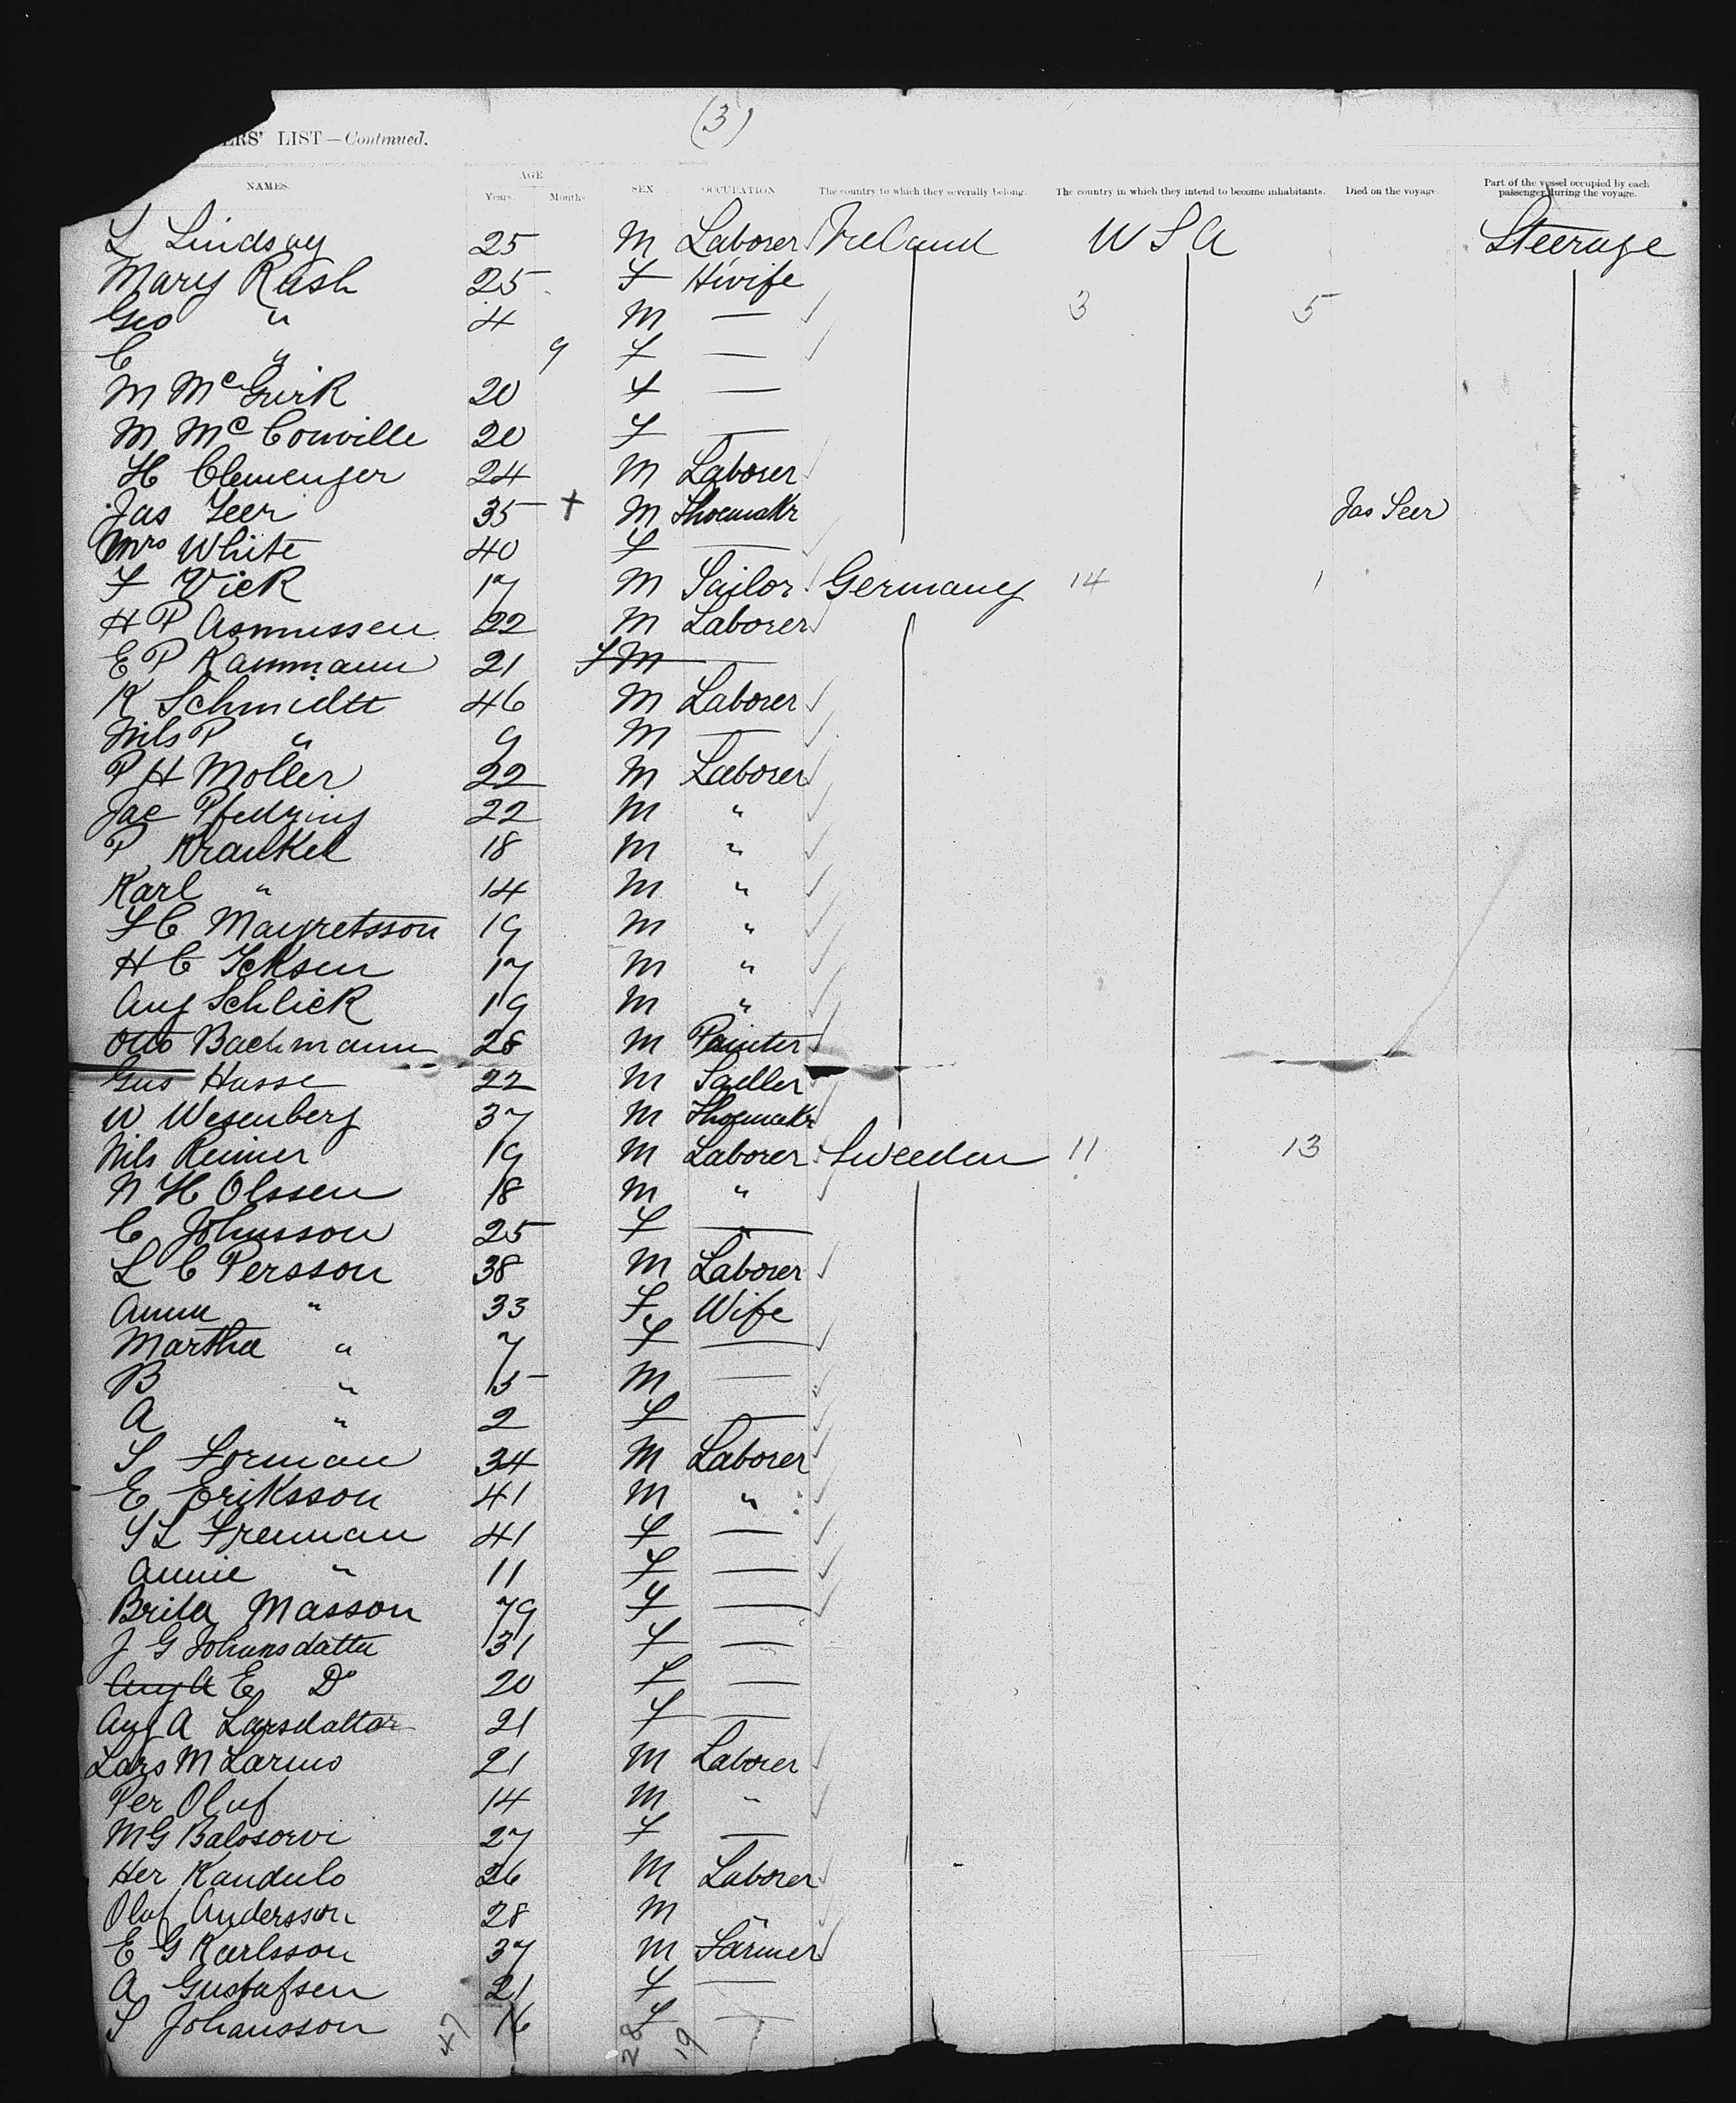 (3)
ERS' LIST—Continued.
NAMES. AGE SEX OCCUPATION The country to which they severally belong. The country in which they intend to become inhabitants. Died on the voyage. Part of the vessel occupied by each passenger during the voyage.
Years. Months
L Lindsay 25 M Laborer Ireland U S A Steerage
Mary Rush 25 F H wife
Geo " 4 M — 3 5
C " 9 F —
M McGurk 20 F —
M McConville 20 F —
H Clemenger 24 M Laborer
Jas Seer 35 + M Shoemakr Jas Seer
Mrs White 40 F —
F Vick 17 M Sailor Germany 14 1
H P Asmussen 22 M Laborer
E P Kammann 21 F M —
K Schmidtt 46 M Laborer
Nils P " 9 M —
P H Moller 22 M Laborer
Jac 22 M "
P Krankel 18 M "
Karl " 14 M "
F C Mayretsson 19 M "
H C 17 M "
Aug Schlick 19 M "
Otto Bachmann 28 M Painter
Gus Hasse 22 M Sadler
W Wesenberg 37 M Shoemakr
Nils Reimer 19 M Laborer Sweeden 11 13
N H Olssen 18 M "
C Johnsson 25 F —
L C Persson 38 M Laborer
Anna " 33 F Wife
Martha " 7 F —
B " 5 M —
A " 2 F —
S Forman 34 M Laborer
E Eriksson 41 M "
S L Freeman 41 F —
Annie " 11 F —
Brita Masson 79 F —
J G Johansdatter 31 F —
Aug A E Do 20 F —
Aug A Larsdatter 21 F —
Lars M Larms 21 M Laborer
Per Oluf 14 M "
M G Balosorvi 27 F —
Her Kandulo 26 M Laborer
Oluf Andersson 28 M "
E G Karlsson 37 M Farmer
A Gustafsen 21 F —
S Johansson 16 F —
47 28 19